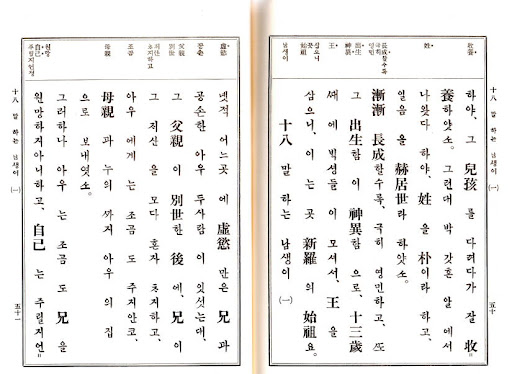 收養.
姓.
長成할수록
극히
영민
出生.
神異.
王.
삼으니
곳
始祖.
남생이
十八 말 하는 남생이 (一)
五十
하야、 그 兒孩 를 다려다가 잘 收
養하얏소。 그런대 박 갓흔 알 에서
나왓다 하야、 姓 을 朴이라 하고、
일음 을 赫居世라 하얏소。
漸漸 長成할수록、 극히 영민하고、 ᄯᅩ
그 出生함 이 神異함 으로、 十三歲
ᄯᅢ에 백성들 이 모셔서、 王 을
삼으니、 이 는 곳 新羅의 始祖요。
十八 말 하는 남생이 (一)
虛慾.
공손.
父親
別世
재산
차지하고
조곰
母親
원망
自己.
주릴지언정
넷적 어느곳 에 虛慾 만은 兄 과
공손한 아우 두사람 이 잇섯는대、
그 父親 이 別世한 後에、 兄 이
그 재산 을 모다 혼자 차지하고、
아우 에게 는 조곰 도 주지안코、
母親 과 누의 ᄭᅡ지 아우 의 집
으로 보내엿소。
그러하나 아우 는 조곰 도 兄 을
원망하지아니하고、 自己 는 주릴지언
十八 말 하는 남생이 (一)
五十一